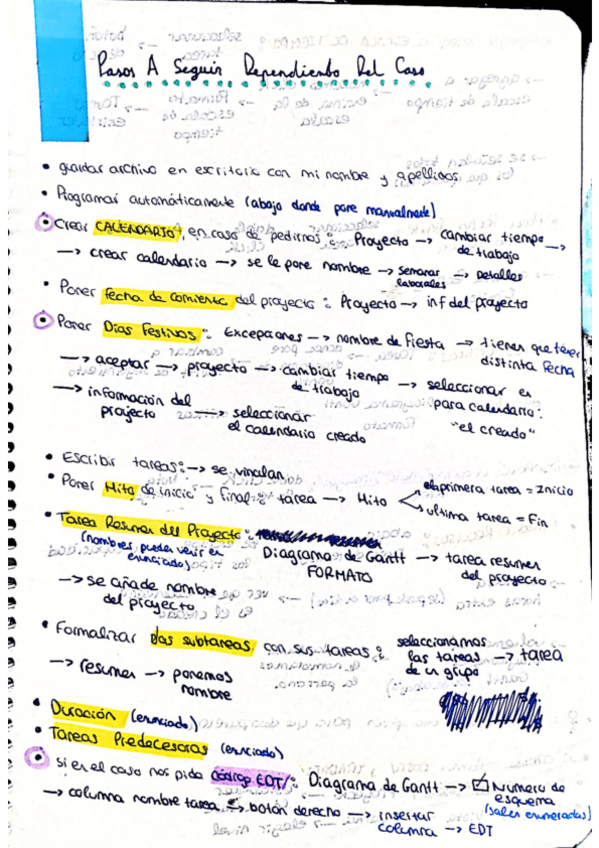 Pasos A Seguir Dependiendo Del Caso
• guardar archivo en escritorio con mi nombre y apellidos
• Programar automáticamente (abajo donde pone manualmente)
• Crear CALENDARIO, en caso de pedirnos: Proyecto → cambiar tiempo de trabajo →
→ crear calendario → se le pone nombre → semanas laborales → Detalles
• Poner fecha de comienzo del proyecto: Proyecto → inf del proyecto
• Poner Días Festivos: Excepciones → nombre de Fiesta → tienen que tener distinta fecha
→ aceptar → proyecto → cambiar tiempo de trabajo → seleccionar en para calendario: "el creado"
→ información del proyecto → seleccionar el calendario creado
• Escribir tareas: → se vinculan
• Poner Hito de inicio y final: tarea → Hito
la primera tarea = Inicio
ultima tarea = Fin
• Tarea Resumen del Proyecto:
(nombres pueden venir en enunciado) Diagrama de Gantt FORMATO → tarea resumen del proyecto
→ se añade nombre del proyecto
• Formalizar las subtareas con sus tareas: seleccionamos las tareas de un grupo → tarea
→ resumen → ponemos nombre
• Duración (enunciado)
• Tareas Predecesoras (enunciado)
• si es el caso nos pida código EDT: Diagrama de Gantt → ☑ Número de esquema
(salen enumeradas)
→ columna nombre tarea → botón derecho → insertar columna → EDT